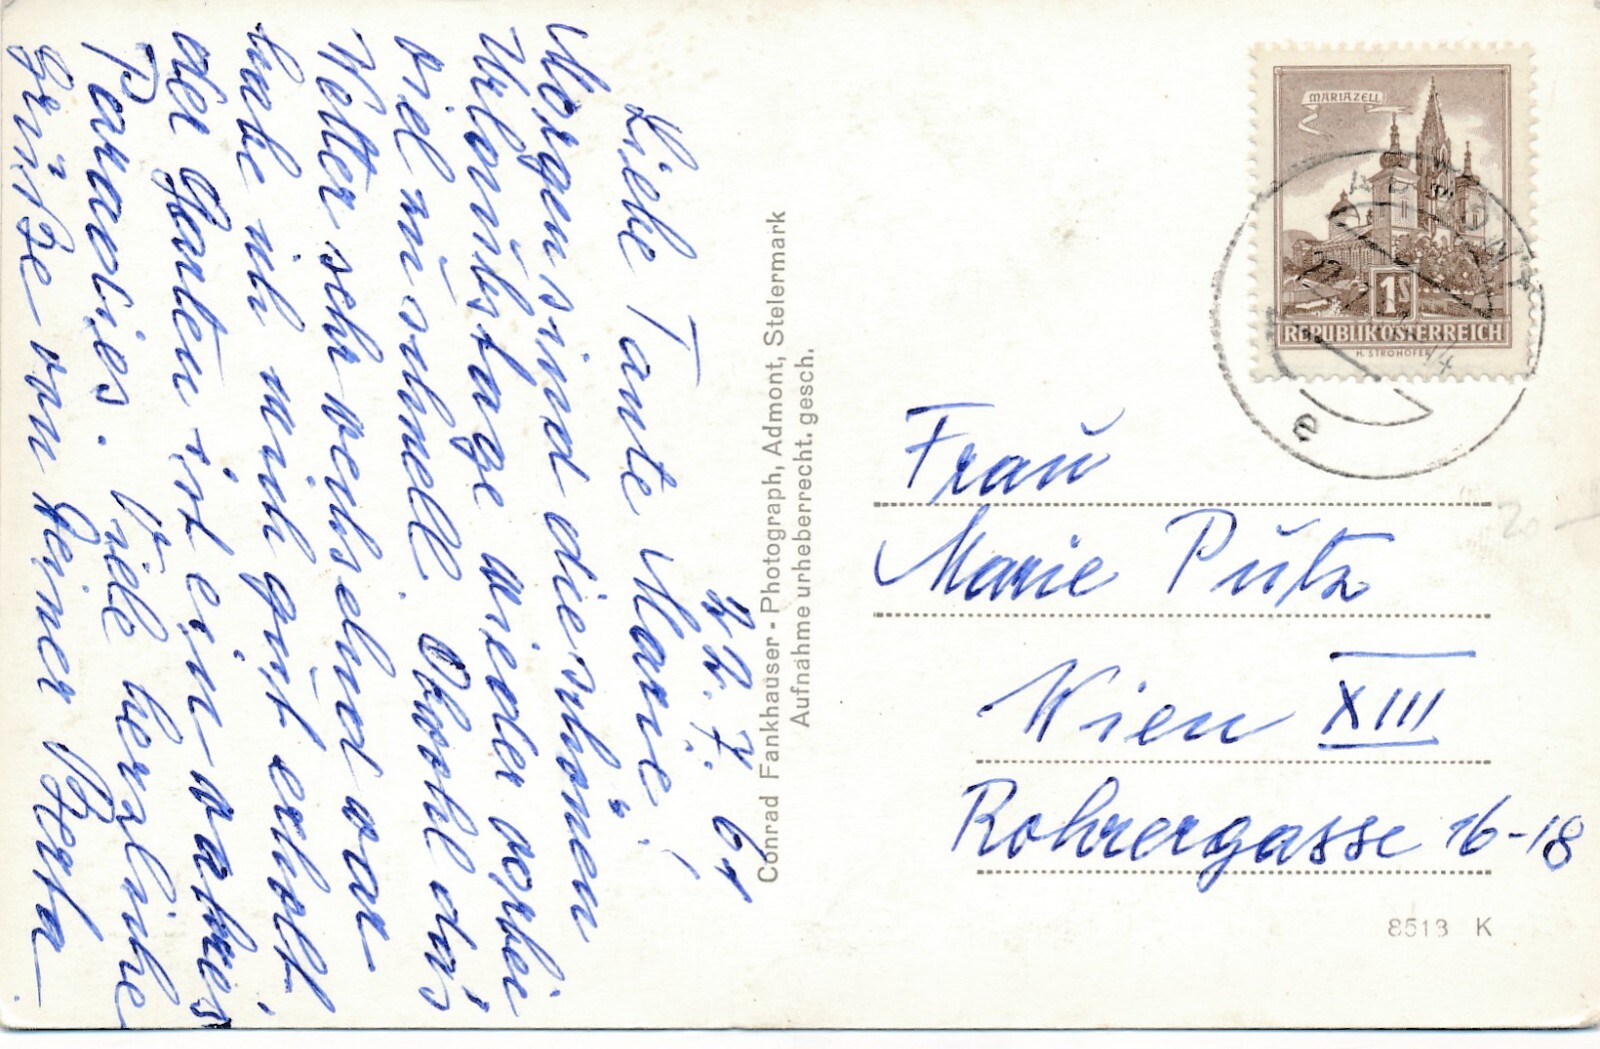 22. 7. 61
Liebe Tante Marie!
Morgen sind die schönen
Urlaubstage wieder vorbei
viel zu schnell. Obwohl das
Wetter sehr wechselnd war
habe ich mich gut erholt
der Garten ist ein wahres
Paradies. Viele herzliche
Grüße von Deiner Berta.
Conrad Fankhauser - Photograph, Admont, Steiermark
Aufnahme urheberrecht. gesch.
MARIAZELL
1S
REPUBLIK ÖSTERREICH
H. STROHOFER
ADMONT
e
Frau
Marie Putz
Wien XIII
Rohrergasse 16-18
8513 K
20